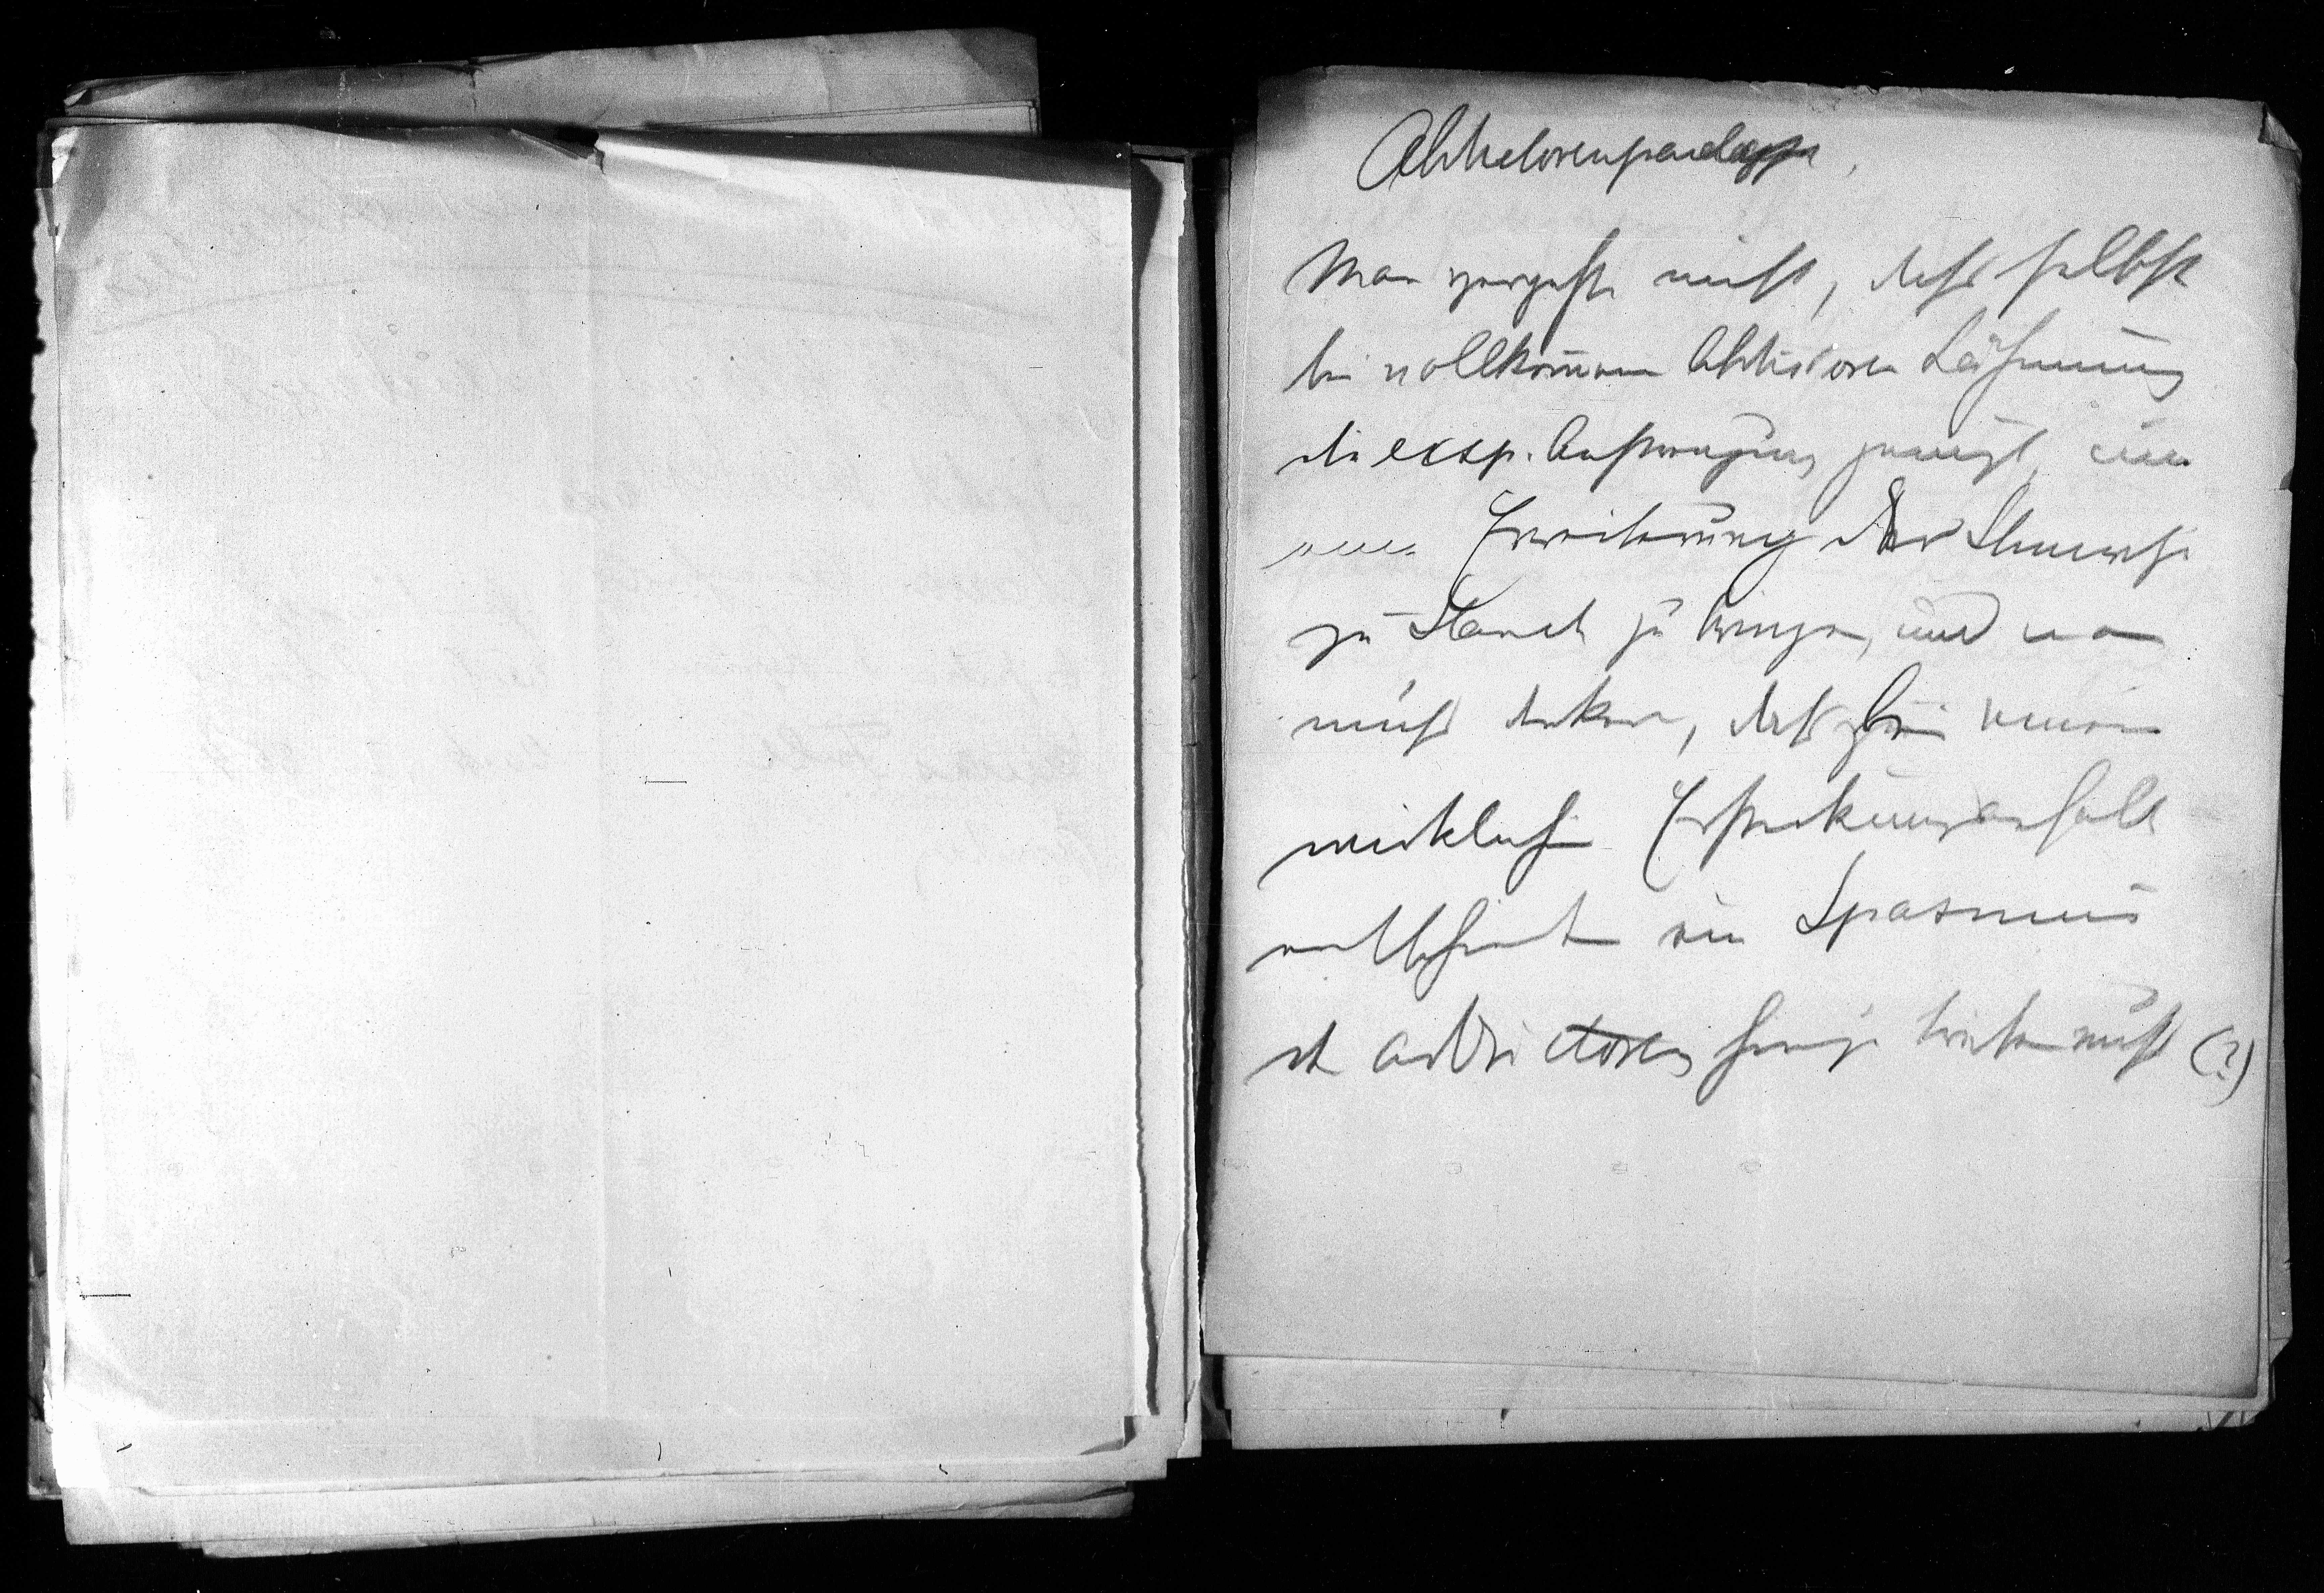 Abductorenparalyse.
Man vergesse nicht, dass selbst
bei vollkommen Abductoren Lähmung
die exsp. Anstrengung genügt, um
eine Erweiterung der Stimmritze
zu Stande zu bringen, und man
muss denken, dass bei einem
wirklichen Erstickungsanfall
vielleicht ein Spasmus
d Adductoren hinzu treten muss (?)